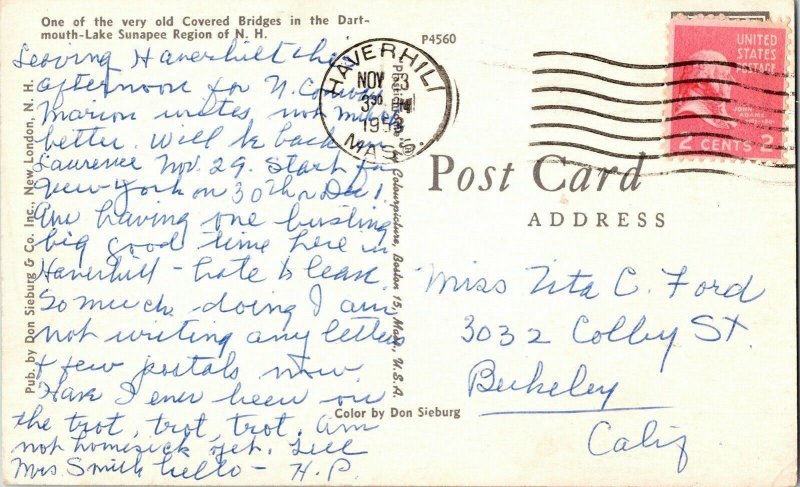 One of the very old Covered Bridges in the Dart-
mouth-Lake Sunapee Region of N. H.
P4560
Leaving Haverhill this
afternoon for N. Conway
Marion writes not much
better. Will be back in
Lawrence Nov. 29. Start for
New York on 30th or Dec 1
Am having one busting
big good time here in
Haverhill - hate to leave.
So much doing I am
not writing any letters
& few postals now.
Have I ever been on
the trot, trot, trot. Am
not homesick yet. Tell
Mrs Smith hello - H.P.
Pub. by Don Sieburg & Co. Inc., New London, N. H.
Plastichrome ® by Colourpicture, Boston 15, Mass., U.S.A.
Color by Don Sieburg
HAVERHILL
NOV 3
3 30 PM
195
MASS.
UNITED
STATES
POSTAGE
JOHN
ADAMS
2 CENTS 2
Post Card
ADDRESS
Miss Zita C. Ford
3032 Colby St.
Berkeley
Calif